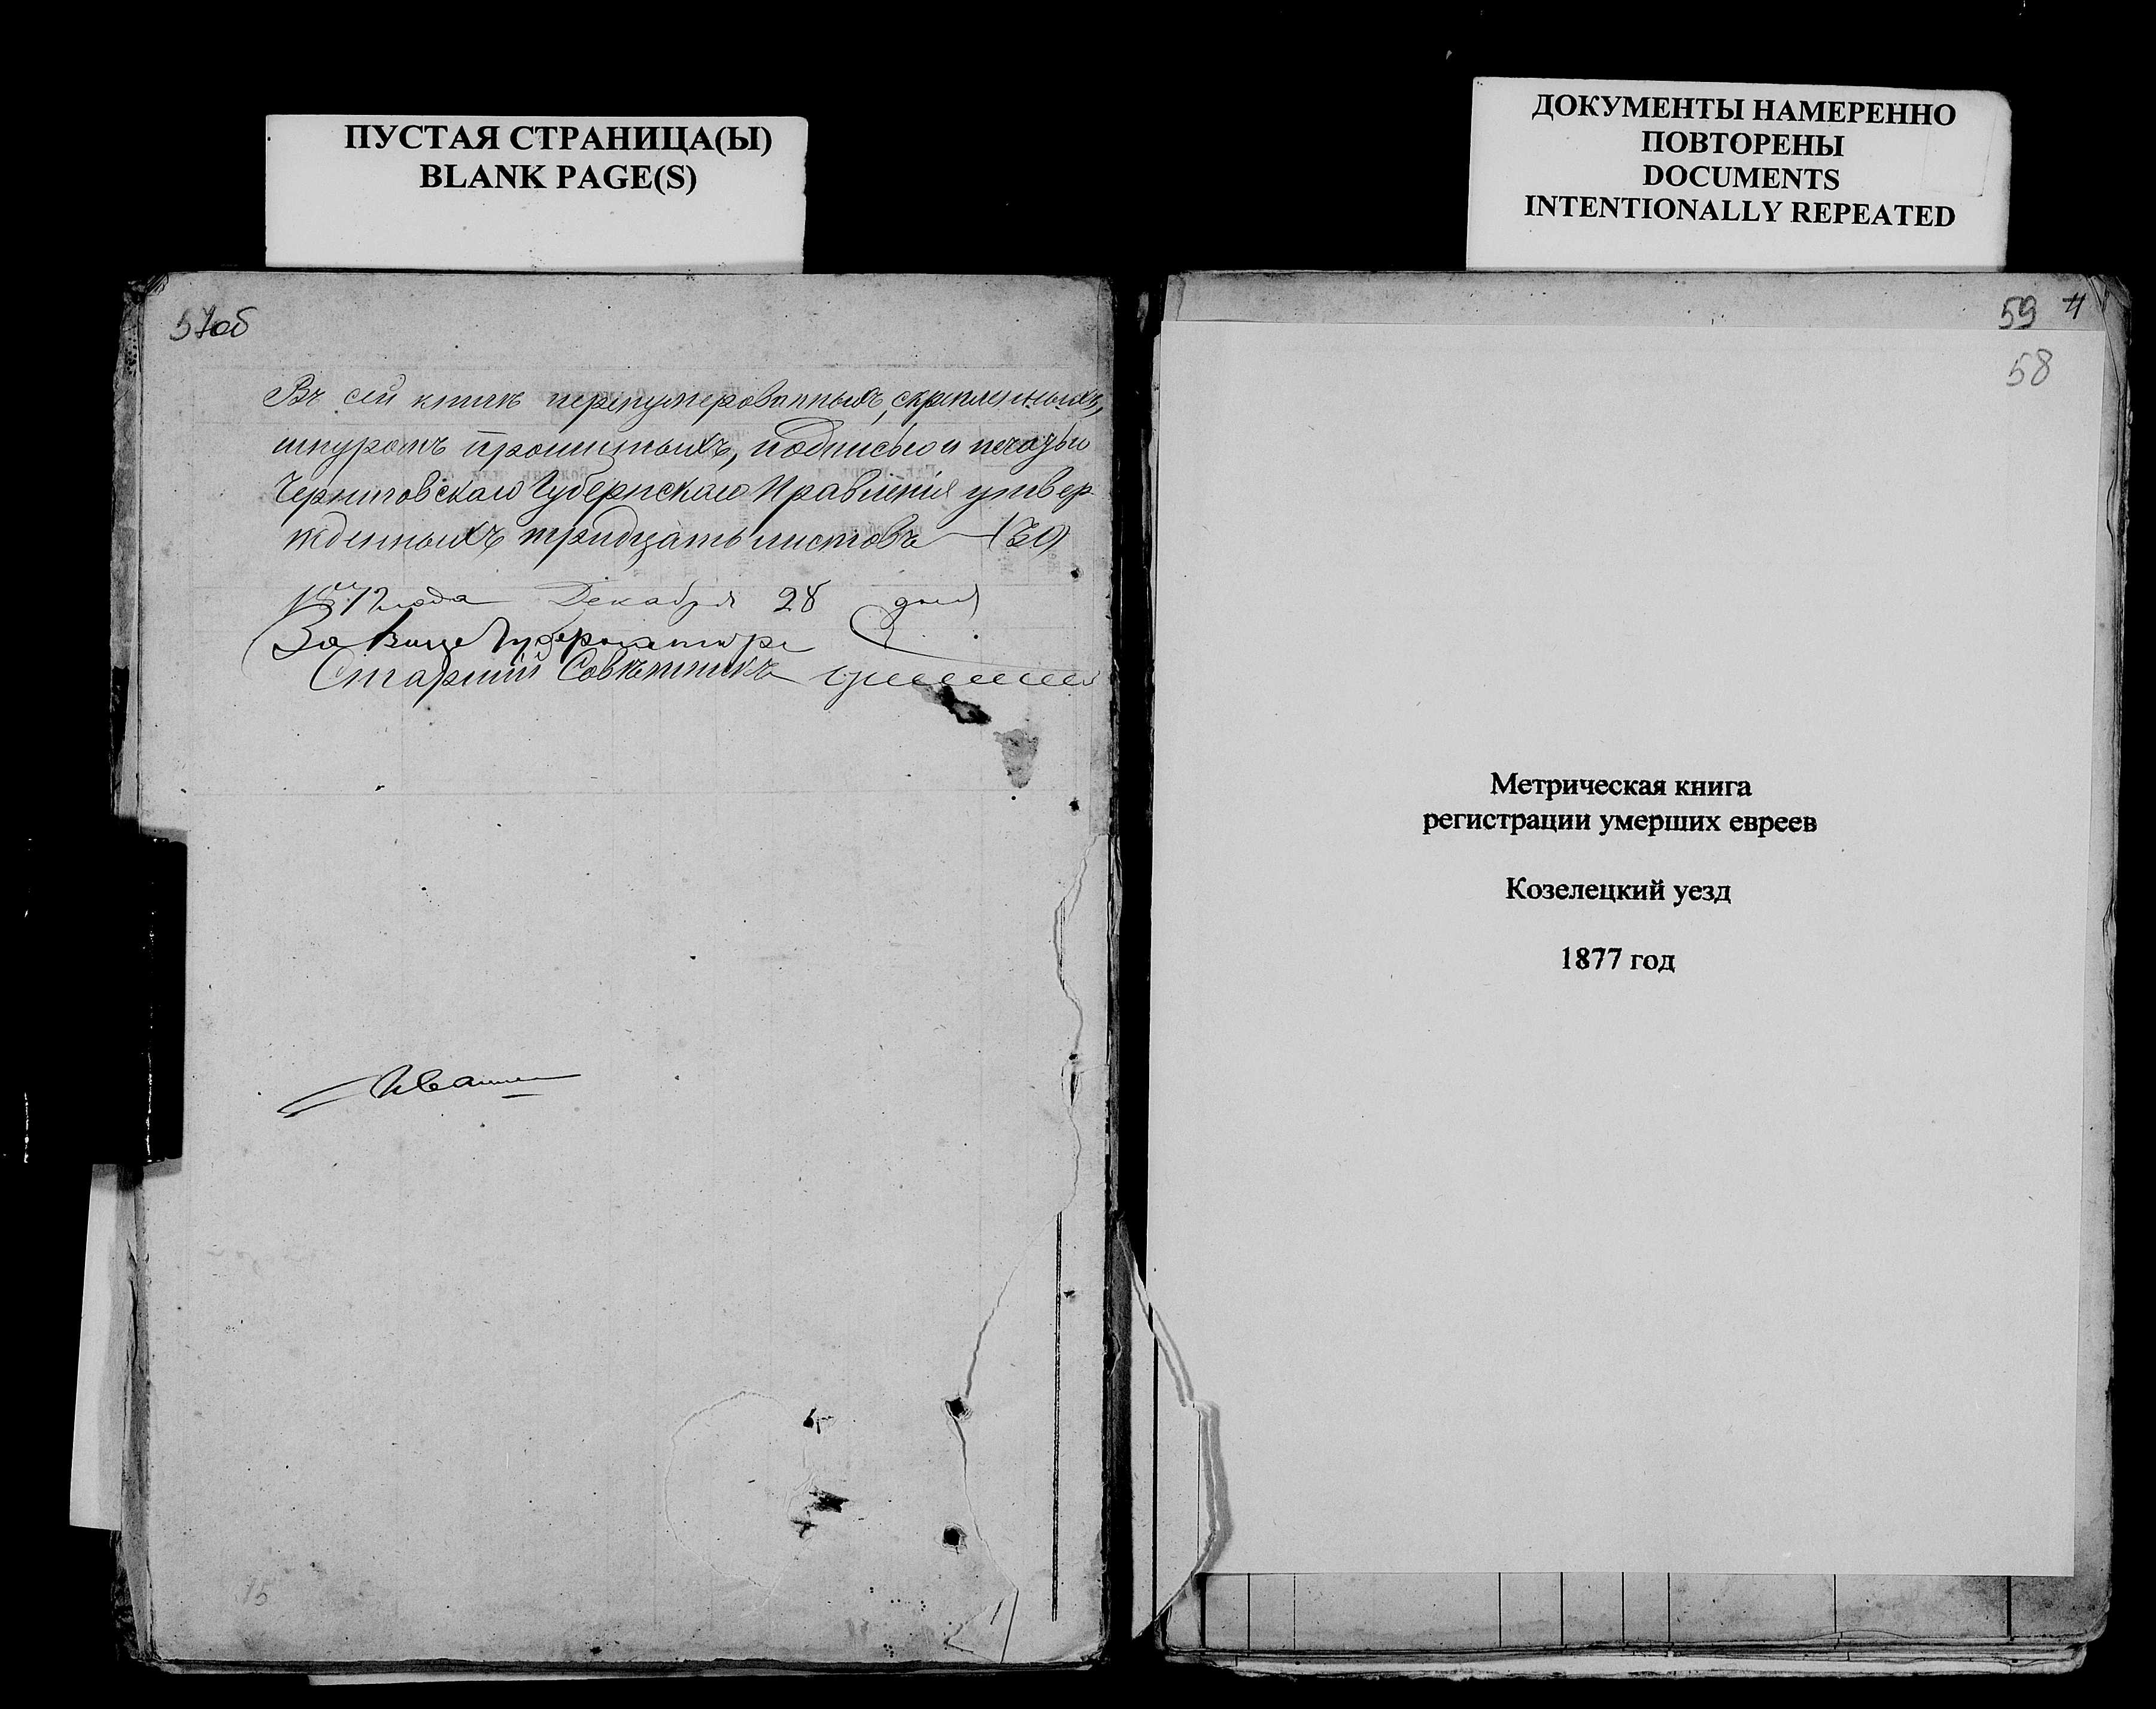 ПУСТАЯ СТРАНИЦА(Ы)
BLANK PAGE(S)
57об
Въ сей книгѣ перенумерованныхъ, скрепленныхъ,
шнуромъ прошитыхъ, подписью и печатью
Черниговскаго Губернскаго Правленія утвер-
жденныхъ тридцать листовъ (30)
года Декабря 28 дня
За Вице Губернатора
Старшій Совѣтникъ
15
ДОКУМЕНТЫ НАМЕРЕННО
ПОВТОРЕНЫ
DOCUMENTS
INTENTIONALLY REPEATED
59
58
Метрическая книга
регистрации умерших евреев
Козелецкий уезд
1877 год